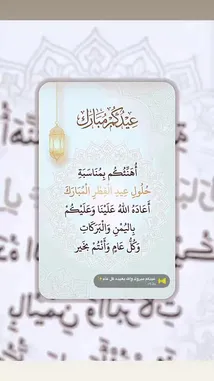 عيدكم مبارك
أُهَنِّئُكُم بِمُنَاسَبَةِ
حُلُولِ عِيدِ الفِطْرِ الْمُبَارَكِ
أَعَادَهُ اللهُ عَلَيْنَا وَعَلَيْكُمْ
بِاليُمْنِ وَالْبَرَكَاتِ
وَكُلُّ عَامٍ وَأَنْتُمْ بِخَيرٍ